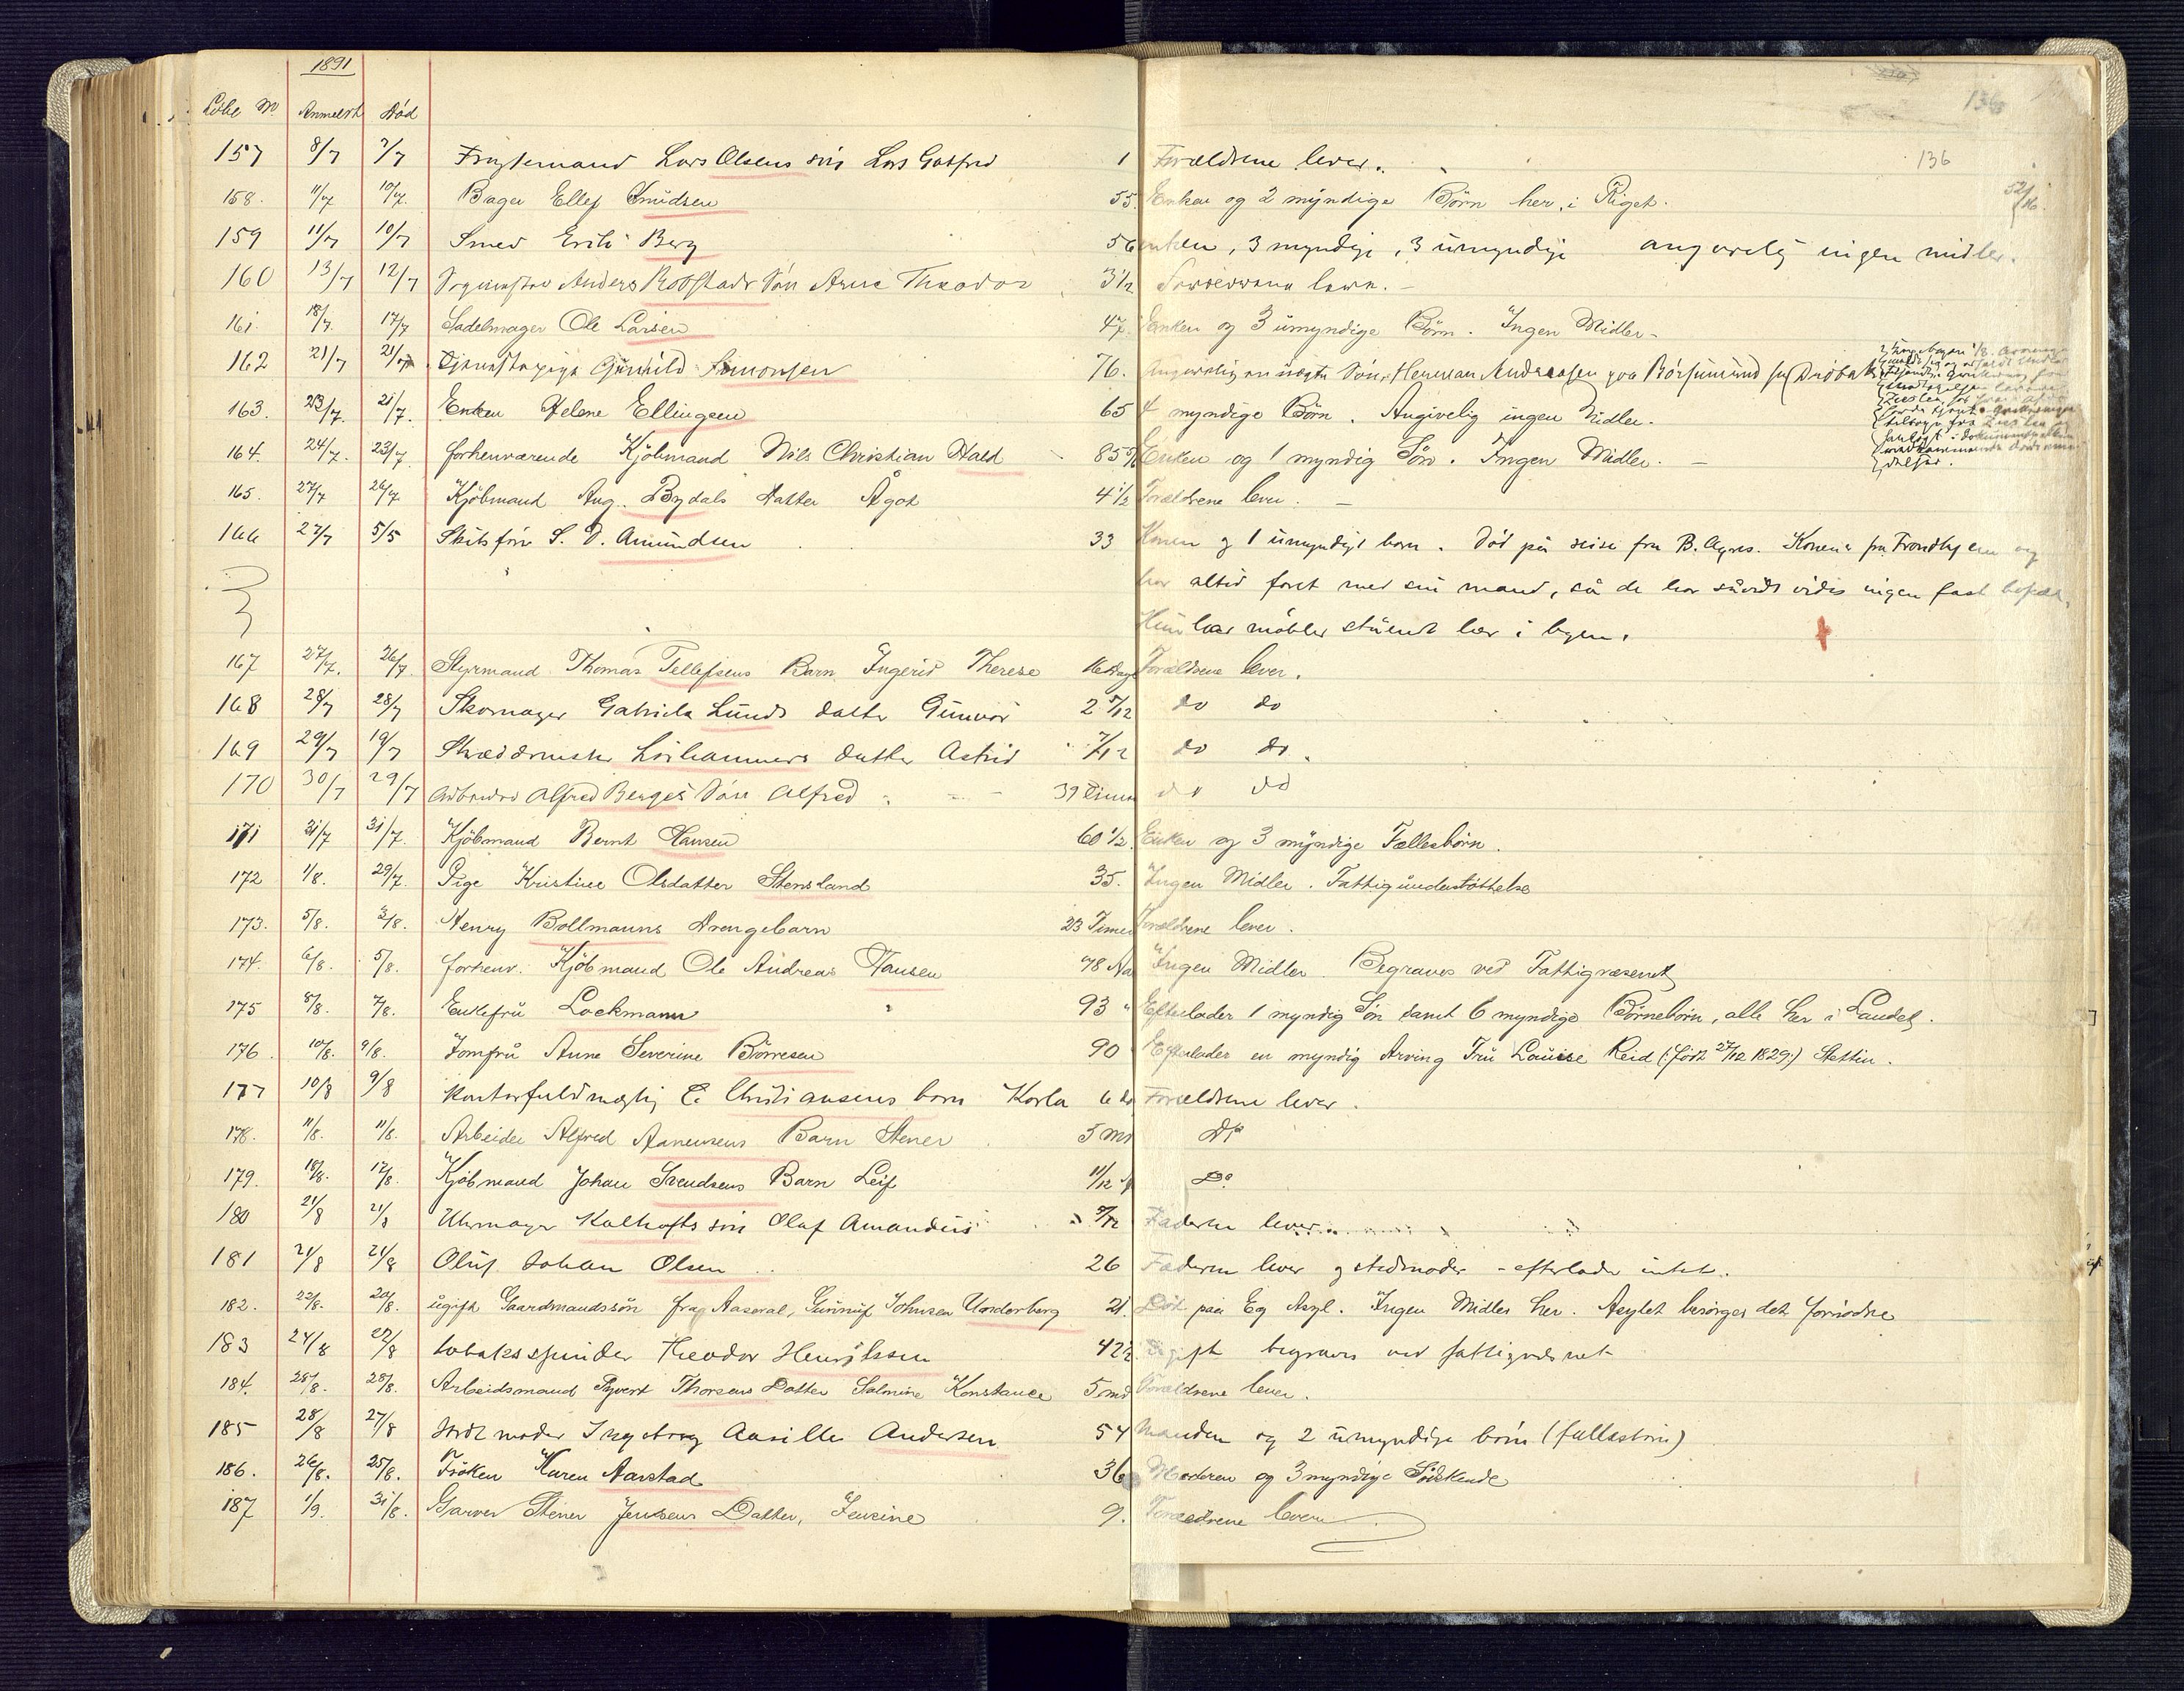 1891
136
Löbe No Anmeldt Död
136
157 8/7 7/7 Lars Olsens sön Lars Gotfred 1 Forældrene lever.
158. 11/7 10/7. Bager Ellef Knudsen 55. Enken og 2 myndige Börn her i Riget.
159 11/7 10/7 Smed Erik Berg 56 enken, 3 myndige, 3 umyndige angivelig ingen midler.
160 13/7 12/7 Anders Robstads Sön Arne Theodor 3 1/2 Forældrene leve. -
161. 18/7. 17/7 Sadelmager Ole Larsen 47. Enken og 3 umyndige Börn. Ingen Midler -
162 21/7 21/7 Tjenestepige Gunhild Simonsen 76. Angivelig en uægte Sön, Herman Andreasen paa
163. 23/7. 21/7. Enken Helene Ellingsen 65 4 myndige Börn. Angivelig ingen Midler.
164. 24/7. 23/7 forhenværende Kjöbmand Nils Christian Hald 85 Enken og 1 myndig Sön. Ingen Midler. -
165. 27/7 26/7 Kjöbmand Aug. Bydals Datter Ågot 4 1/2 Forældrene lever. -
166 27/7 5/5 Skibsförer S. D. Amundsen 33 Konen og 1 umyndigt barn. Död på reise fra B. Ayres. Konen er fra Trondhjem og
har altid faret med sin mand, så de har såvidt vides ingen fast bopæl.
Hun har möbler stående her i byen.
167 27/7. 26/7. Styrmand Thomas Tellefsens Barn Ingerid Therese 16 Dage Forældrene lever.
168 28/7 28/7 Skomager Gabriel Lunds datter Gunvor 2 5/12 do do
169 29/7 19/7 datter Astrid 7/12 do do.
170 30/7 29/7 Arbeider Alfred Berges Sön Alfred 39 Timer do do
171 31/7 31/7. Kjöbmand Bernt Hansen 60 1/2. Enken og 3 myndige Fællesbörn.
172 1/8. 29/7. Pige Kristine Olsdatter Stensland 35. Ingen Midler. Fattigunderstöttelse
173. 5/8. 3/8. Henry Bollmanns Drengebarn 23 Timer Forældrene lever.
174. 6/8. 5/8. forhenv. Kjöbmand Ole Andreas Hansen 78 Aar Ingen Midler. Begraves ved Fattigvæsenet
175 8/8. 7/8. Enkefru Lockmann 93 " Efterlader 1 myndig Sön samt 6 myndige Börnebörn, alle her i Landet.
176. 10/8. 9/8. Jomfru Anne Severine Börresen 90 Efterlader en myndig Arving Fru Louise Reid (född 27/12 1829.) Stettin.
177 10/8 9/8 Kontorfuldmægtig C. Christiansens barn Karla 6 do Forældrene lever.
178. 11/8. 11/8. Arbeider Alfred Aanensens Barn Stener 5 Md Do
179. 18/8. 17/8. Kjöbmand Johan Svendsens Barn Leif 11/12 Do
180 21/8 21/8 Uhrmager Kalhofts sön Olaf Amandus 5/12 Faderen lever.
181 21/8 21/8 Oluf Johan Olsen 26 Faderen lever og stedmoder - efterlader intet.
182. 22/8. 20/8. ugift Gaardmandssön fra Aaseral, Gunnuf Johnsen Underberg 21. Död paa Eg Asyl. Ingen Midler her. Asylet besörger det fornödne
183 24/8 22/8 tobaksspinder Theodor Henriksen 42 1/2 Ugift begraves ved fattigvæsnet
184. 25/8. 25/8. Arbeidsmand Syvert Thorsens Datter Salmine Konstance 5 md Forældrene lever.
185 28/8 27/8 Jordmoder Ingeborg Andersen 54 Manden og 2 umyndige börn (fællesbörn)
186. 26/8. 25/8. Fröken Karen Aarstad 36 Moderen og 3 myndige Södskende
187 1/9. 31/8. Garver Stener Jensens Datter, Jensine 9. Forældrene lever